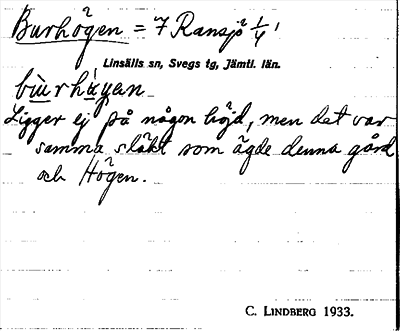 Burhögen = 7 Ransjö 1/4
Linsälls sn, Svegs tg, Jämtl. län.
bùrhá̱yan
Ligger ej på någon höjd, men det var
samma släkt som ägde denna gård
och Högen.
C. LINDBERG 1933.